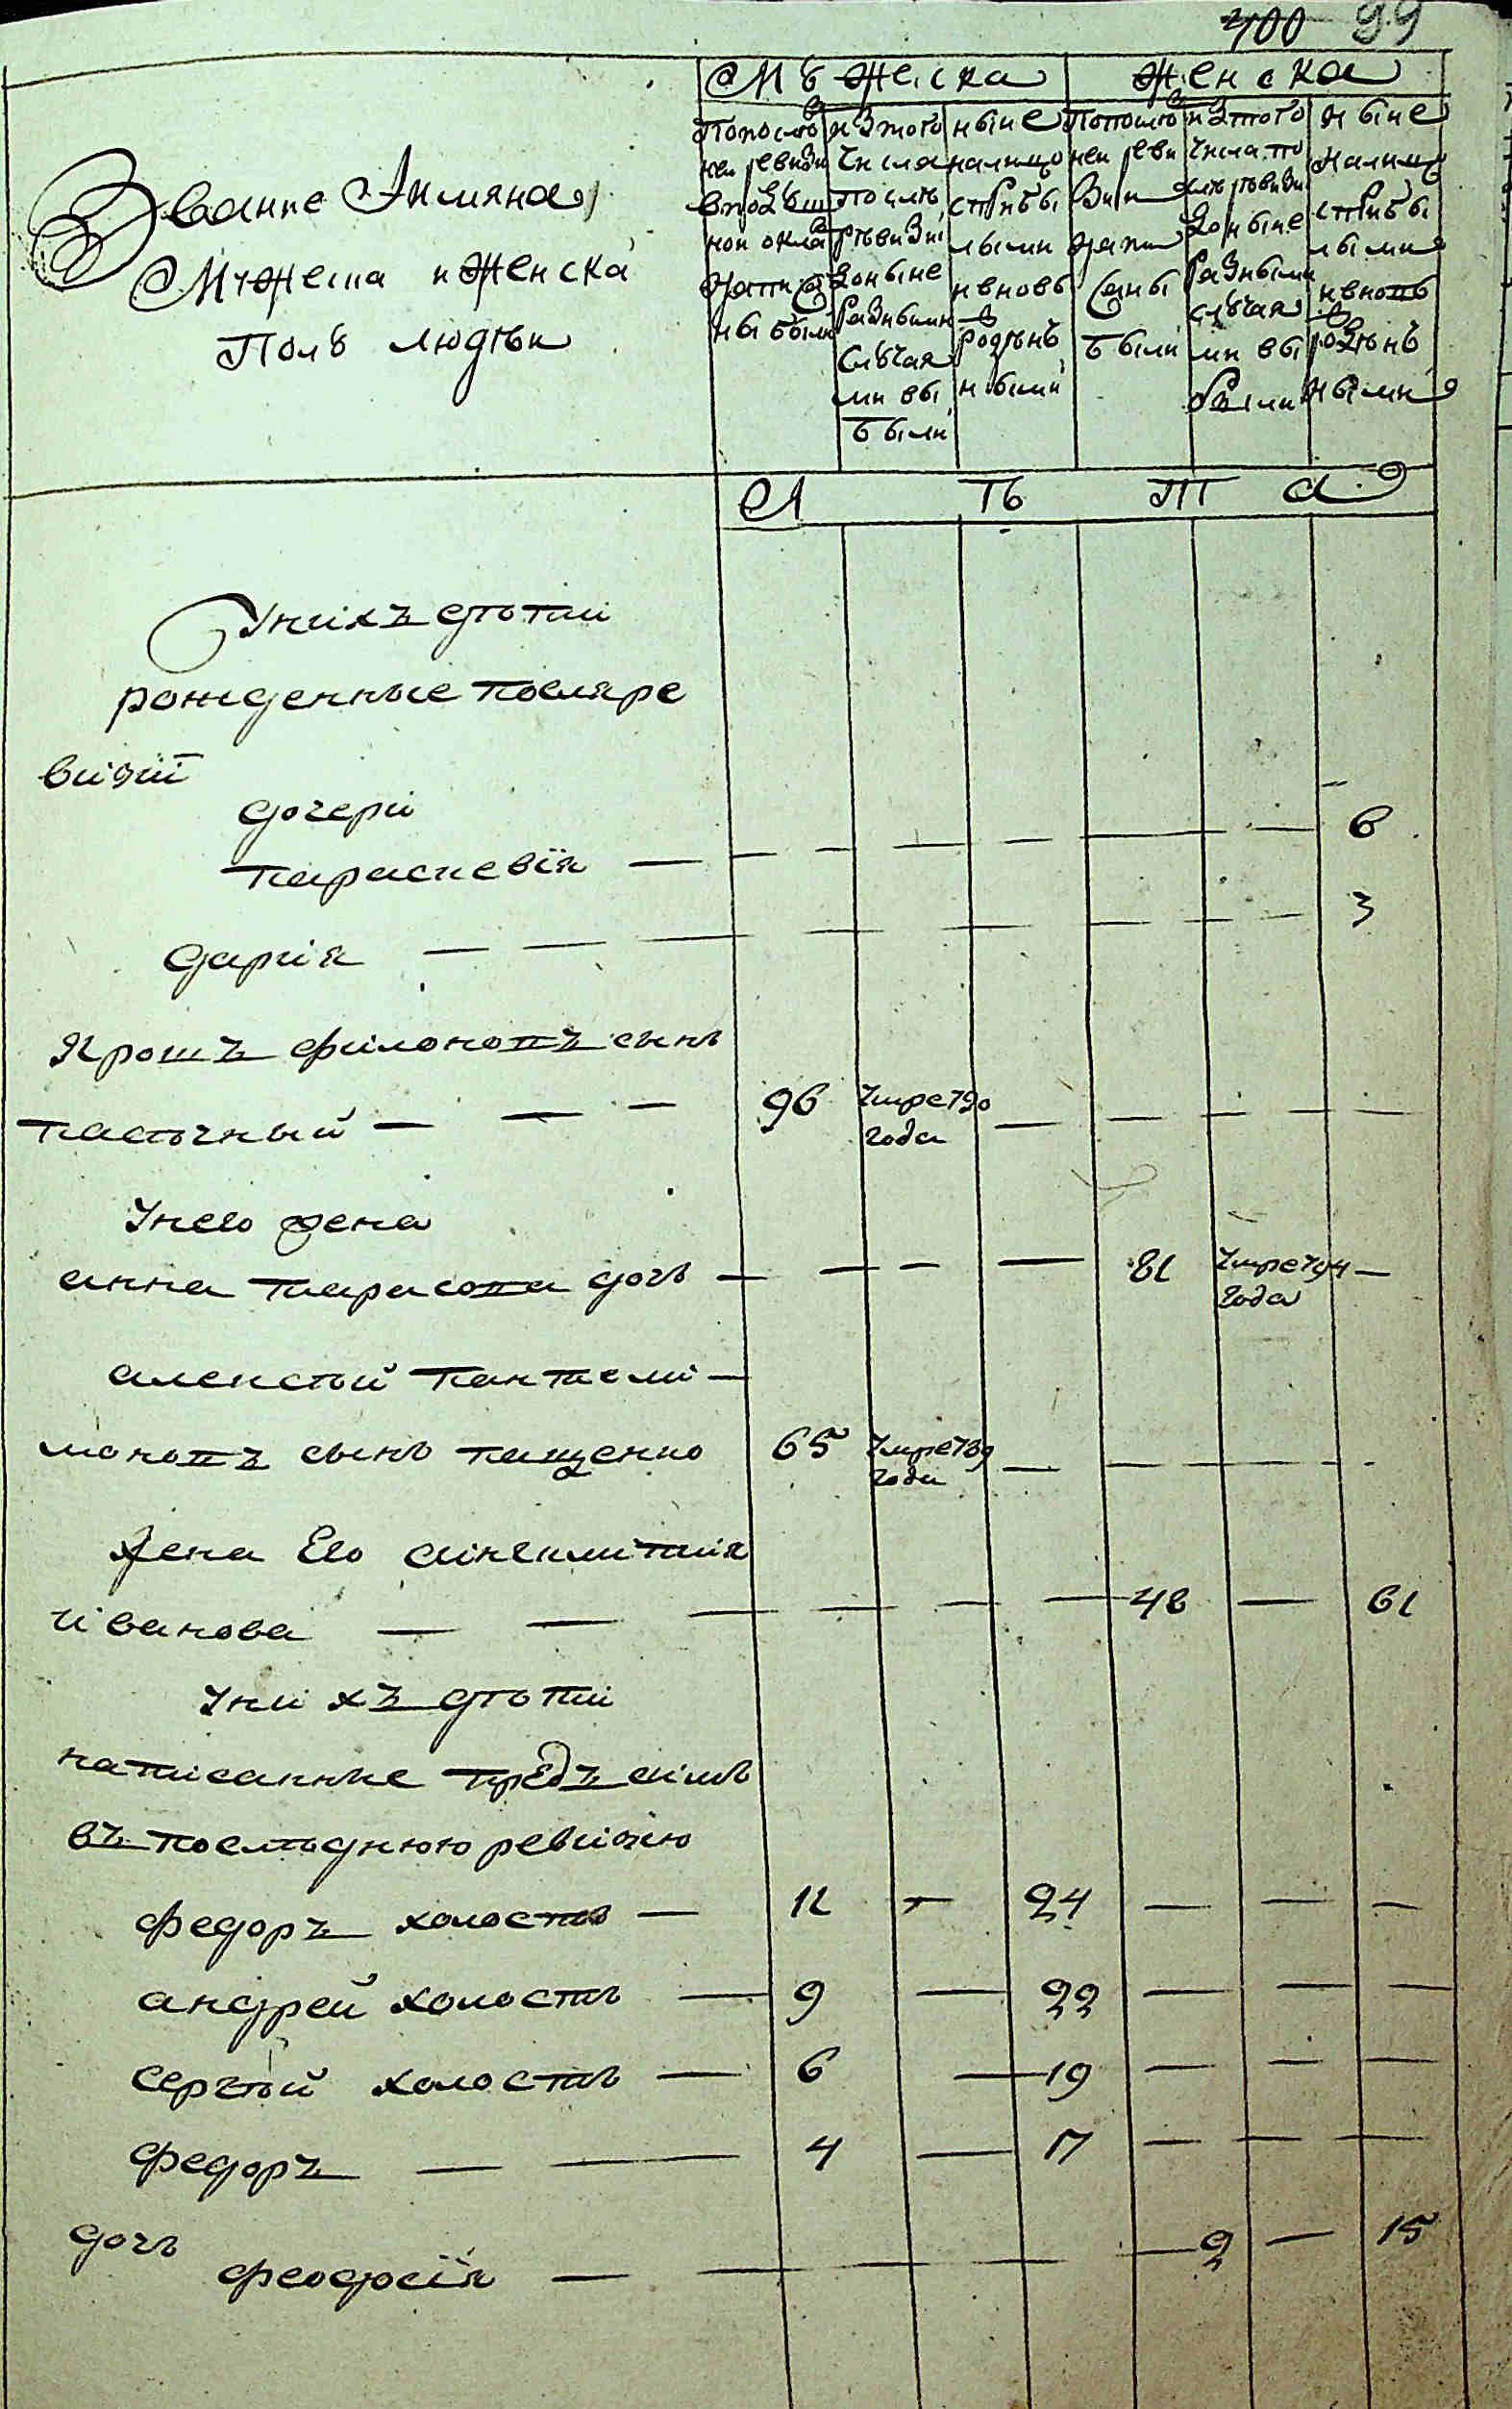 400 99
Мужеска Женска
Звание
Мужеска и женска
Полу людѣи
По послѣдней ревизии в подушной оклад написаны были
ис того числа после ревизии доныне разными случаями выбыли
ныне налицо с прибылыми и вновь рожденными
По последней ревизии написаны были
ис того числа после ревизии доныне разными случаями выбыли
ныне налицо с прибылыми и вновь рожденными
Л Ѣ Т А
У нихъ дѣти
рожденные посля ре
визїи
дочери
параскевїя — — — — — — 6
дария — — — — — — 3
филоновъ сынъ
пасѣчный — — — 96 Умре 790 года — — — —
У него жена
анна тарасова дочь — — — — 81 Умре 794 года —
алексѣй пантели—
моновъ сынъ пащенко 65 Умре 789 года — — — —
жена Его синклитиия
иванова — — — — — — 48 — 61
У нихъ дѣти
написанные предъ симъ
въ последнюю ревизию
федоръ холостъ — 12 — 24 — — —
андрей холостъ — 9 — 22 — — —
сергѣй холостъ — 6 — 19 — — —
федоръ — — 4 — 17 — — —
дочь
феодосїя — — — — — 2 — 15